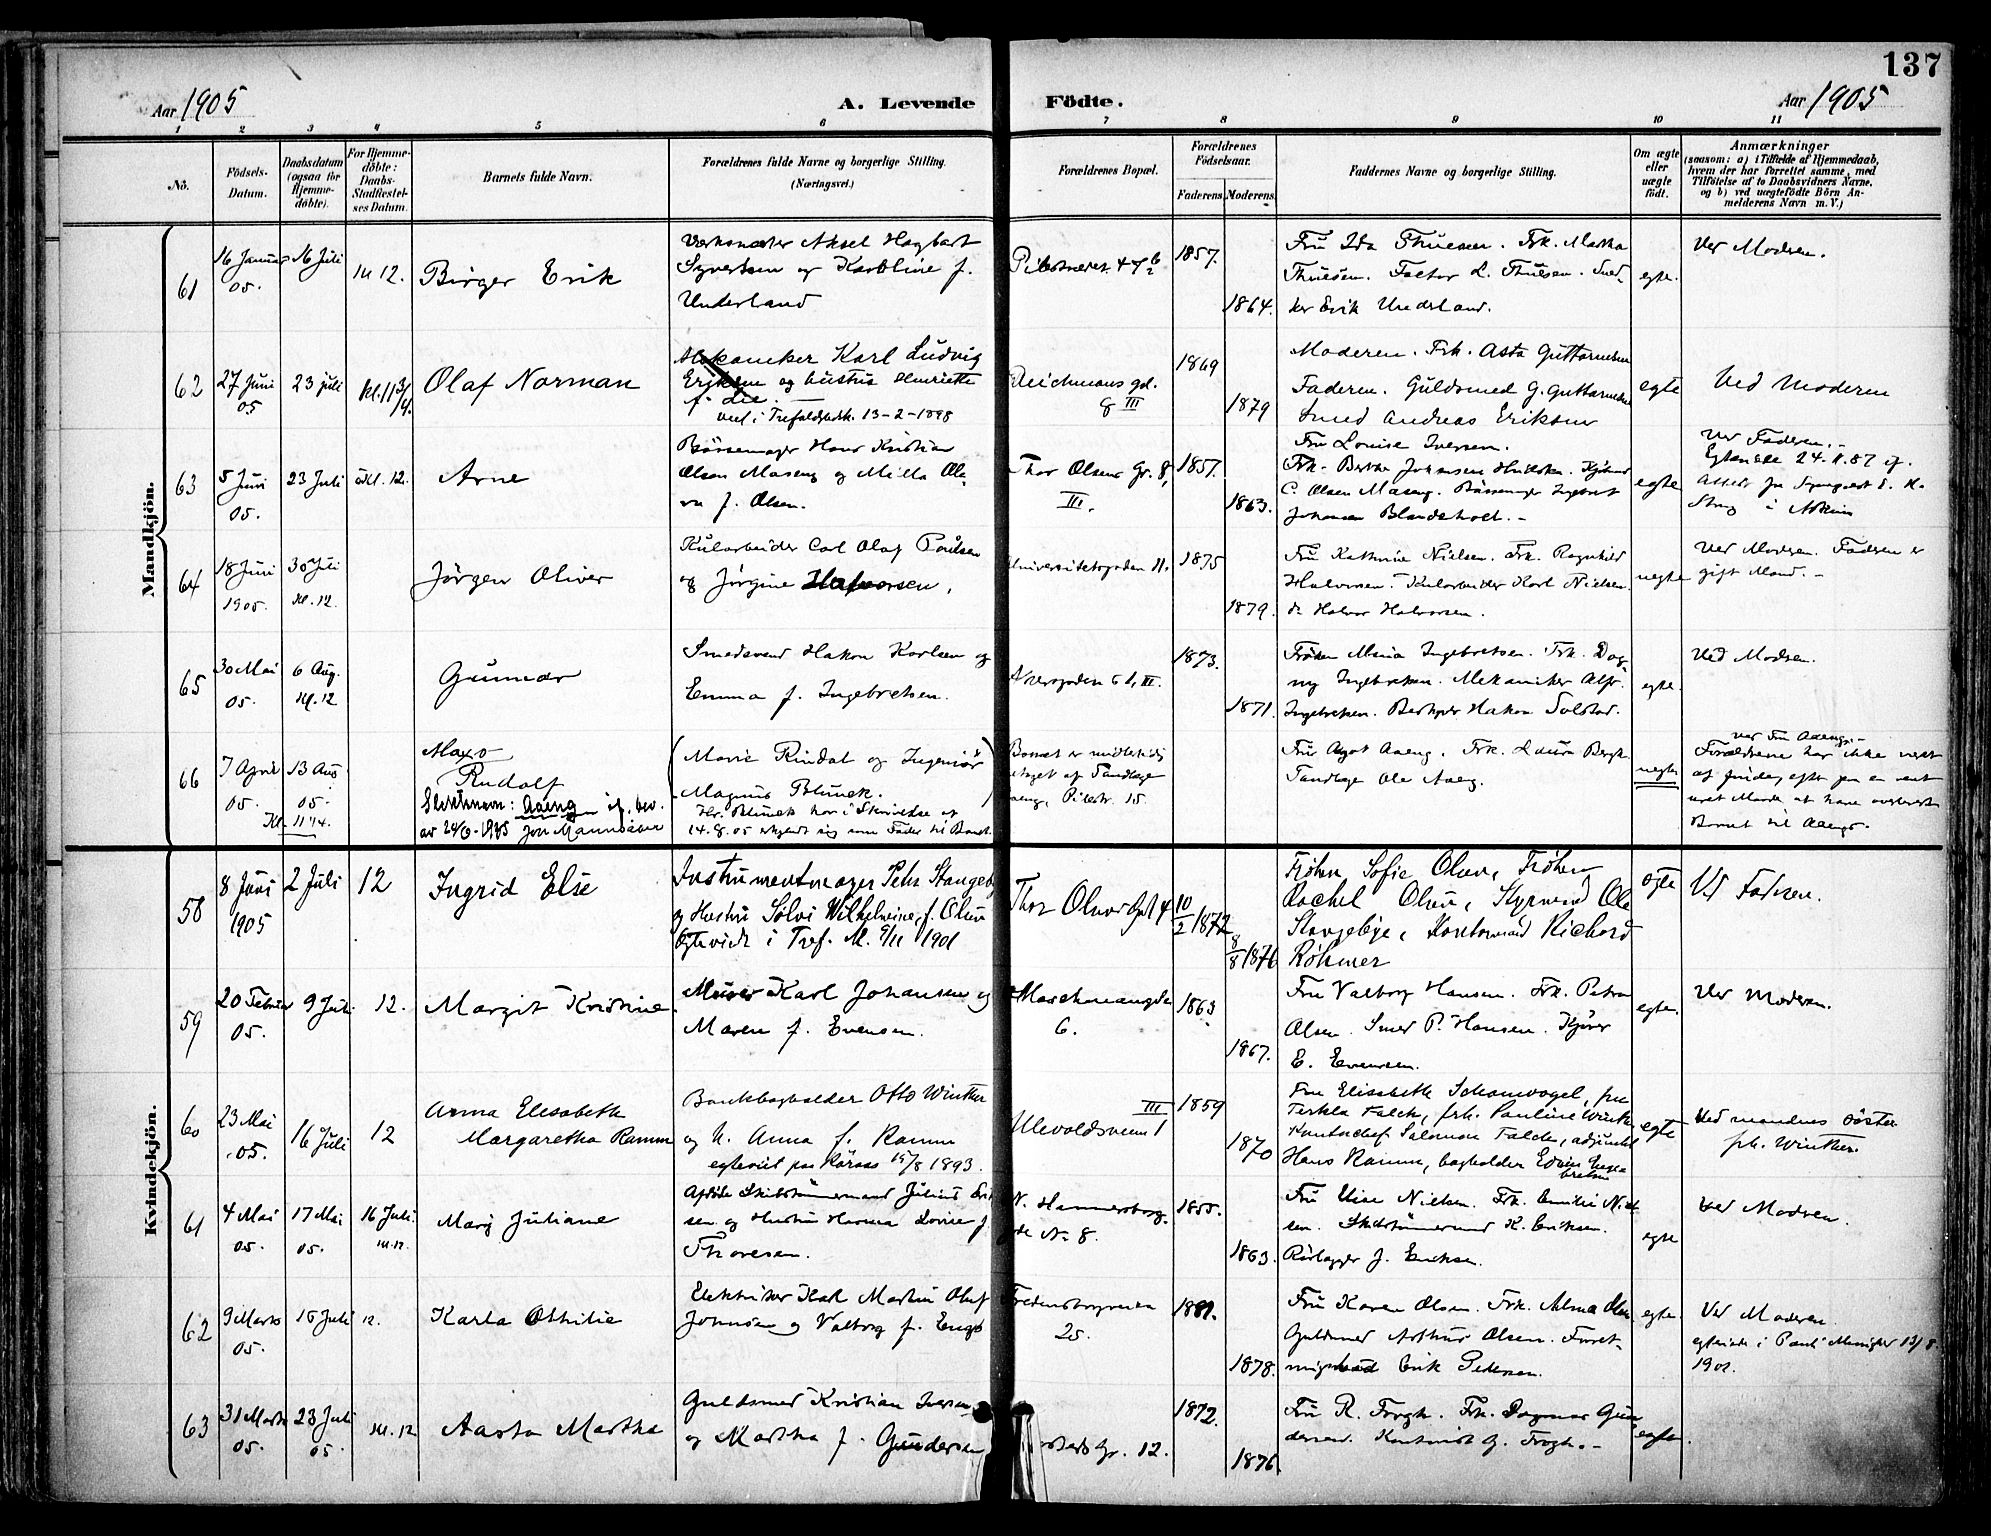 137
Aar 1905
A. Levende Födte.
Aar 1905
1 2 3 4 5 6 7 8 9 10 11
No.
Födsels-
Datum.
Daabsdatum
(ogsaa for
Hjemme-
döbte).
For Hjemme-
döbte:
Daabs-
Stadfæstel-
ses Datum.
Barnets fulde Navn.
Forældrenes fulde Navne og borgerlige Stilling.
(Næringsvei.)
Forældrenes Bopæl.
Forældrenes
Födselsaar.
Faderens Moderens.
Faddernes Navne og borgerlige Stilling.
Om ægte
eller
uægte
födt.
Anmærkninger
(saasom: a) i Tilfælde af Hjemmedaab,
hvem der har forrettet samme, med
Tilföielse af to Daabsvidners Navne,
og b) ved uægtefödte Börn An-
melderens Navn m. V.)
Mandkjön.
61
16 Januar
05.
16 Juli
Kl 12.
Birger Erik
Værksmester Aksel Hagbart
Syvertsen og Karoline f.
Underland
Pilestrædet 47
1857.
1864.
Fru Ida Thuesen. Frk. Martha
Thuesen. Faktor L. Thuesen. Sned-
ker Erik Underland.
egte.
Ved Moderen.
62
27 Juni
05
23 juli
Kl. 11 3/4.
Olaf Norman
Mekaniker Karl Ludvig
Eriksen og hustru Henriette
f. Lie.
viet i Trefoldighedsk. 13-2-1898
Reichmans gd.
8 III
1869
1879
Moderen. Frk. Asta Guttormsen
Faderen. Guldsmed G. Guttormsen
Smed Andreas Eriksen
egte
Ved Moderen
63
5 Juni
05.
23 Juli
Kl. 12.
Arne
Bøssemager Hans Kristian
Olsen Maseng og Milla Ole-
va f. Olsen.
Thor Olsens Gr. 8,
III.
1857.
1863.
Fru Louise Iversen.
Frk. Berthe Johansen
C. Olsen Maseng. Bøssemager Ingebret
Johansen Blandehoel. -
egte
Ved Faderen. -
64
18 Juni
1905.
30 Juli
Kl. 12.
Jörgen Oliver
Kularbeider Carl Olaf Poulsen
og Jörgine Halvorsen,
Universitetsgaden 11.
1875
1879.
Fru Kathrine Nielsen. Frk. Ragnhild
Halvorsen. Kularbeider Karl Nielsen.
Halvor Halvorsen.
uegte
Ved Moderen. Faderen er
gift Mand. -
65
30 Mai
05.
6 Aug.
Kl. 12
Gunnar
Smedsvend Hakon Karlsen og
Emma f. Ingebretsen.
Akersgaden 61, III.
1873.
1871.
Frøken Maria Ingebretsen. Frk. Dag-
ny Ingebretsen. Mekaniker Alfr.
Ingebretsen. Hakon Solstad.
egte.
Ved Moderen.
66
7 April
05.
13 Aug
05.
Kl. 11 1/4.
Maxo
Rudolf
Slektsnavn: Aaeng if. bev.
av 24/9-1925
(Marie Rindal og Ingeniør
Magnus Blunck.)
Hr. Blunck har i Skrivelse af
14.8.05 erkjendt sig som Fader til Barnet.
Barnet er midlertidig
antaget af Tandlæge
Aaeng, Pilestr. 15.
Fru Agot Aaeng. Frk. Laura Bergh.
Tandlæge Ole Aaeng.
uegte
ved Fru Aaeng. -
Forældrene har ikke
Barnet til Aaengs.
Kvindekjön.
58
8 Juni
1905
2 Juli
12
Ingrid Else
Instrumentmager Peder Stangebye
og Hustru Sølvi Wilhelmine, f. Olsen
Egteviede i Tref. M. 9/11 1901
Thor Olsens Gade 4
10/2 1872
8/8 1876
Frøken Sofie Olsen, Frøken
Rachel Olsen, Styrmand Ole
Stangebye, Kontormand Richard
Röhmer
egte
Ved Faderen.
59
20 Februar
05.
9 Juli
12.
Margit Kristine
Murer Karl Johansen og
Maren f. Evensen.
Maschmanngden
6.
1863
1867.
Fru Valborg Hansen. Frk. Petra
Olsen. Smed P. Hansen. Kjører
E. Evensen.
egte.
Ved Moderen.
60
23 Mai
.05.
16 Juli
12
Anna Elisabeth
Margaretha Ramm
Bankbogholder Otto Winther
og H. Anna f. Ramm
egteviet paa Röraas 15/8 1893.
Ullevoldsveien 1 III
1859
1870
Fru Elisabeth Schanvogel, fru
Terkla Falck, frk. Pauline Winther
Kontorchef Salomon Falck, adjunkt
Hans Ramm, bogholder Edvin Inge-
bretsen
egte
Ved mandens søster
frk. Winther.
61
4 Mai
05.
17 Mai
05.
16 Juli.
Kl. 12.
Mary Juliane
Skibstømmermand Julius Erik
sen og Hustru Herma Lovise f.
Thoresen.
N. Hammersborg-
gde No 8.
1855.
1863.
Fru Elise Nielsen. Frk. Emilie Niel
sen. Skibstømmermand K. Eriksen.
Rørlægger J. Eriksen.
egte
Ved Moderen.
62
9 Marts
05.
16 Juli
12.
Karla Othilie
Elektriker Karl Martin Olaf
Johnsen og Valborg f. Engh
Fredensborgveien
25.
1881.
1878.
Fru Karen Olsen. Frk. Alma Olsen
Guldsmed Arthur Olsen. Forret-
ningsmand Erik Pedersen.
egte.
Ved Moderen.
egteviede i Pauli Menighed 13/8
1901.
63
31 Marts
05.
23 Juli
05.
Kl. 12
Aasta Martha
Guldsmed Kristian Iversen
og Martha f. Gundersen
Gr. 12.
1872.
1876
Fru R. Frogh. Frk. Dagmar Gun
dersen. Kontorist G. Frogh. -
egte.